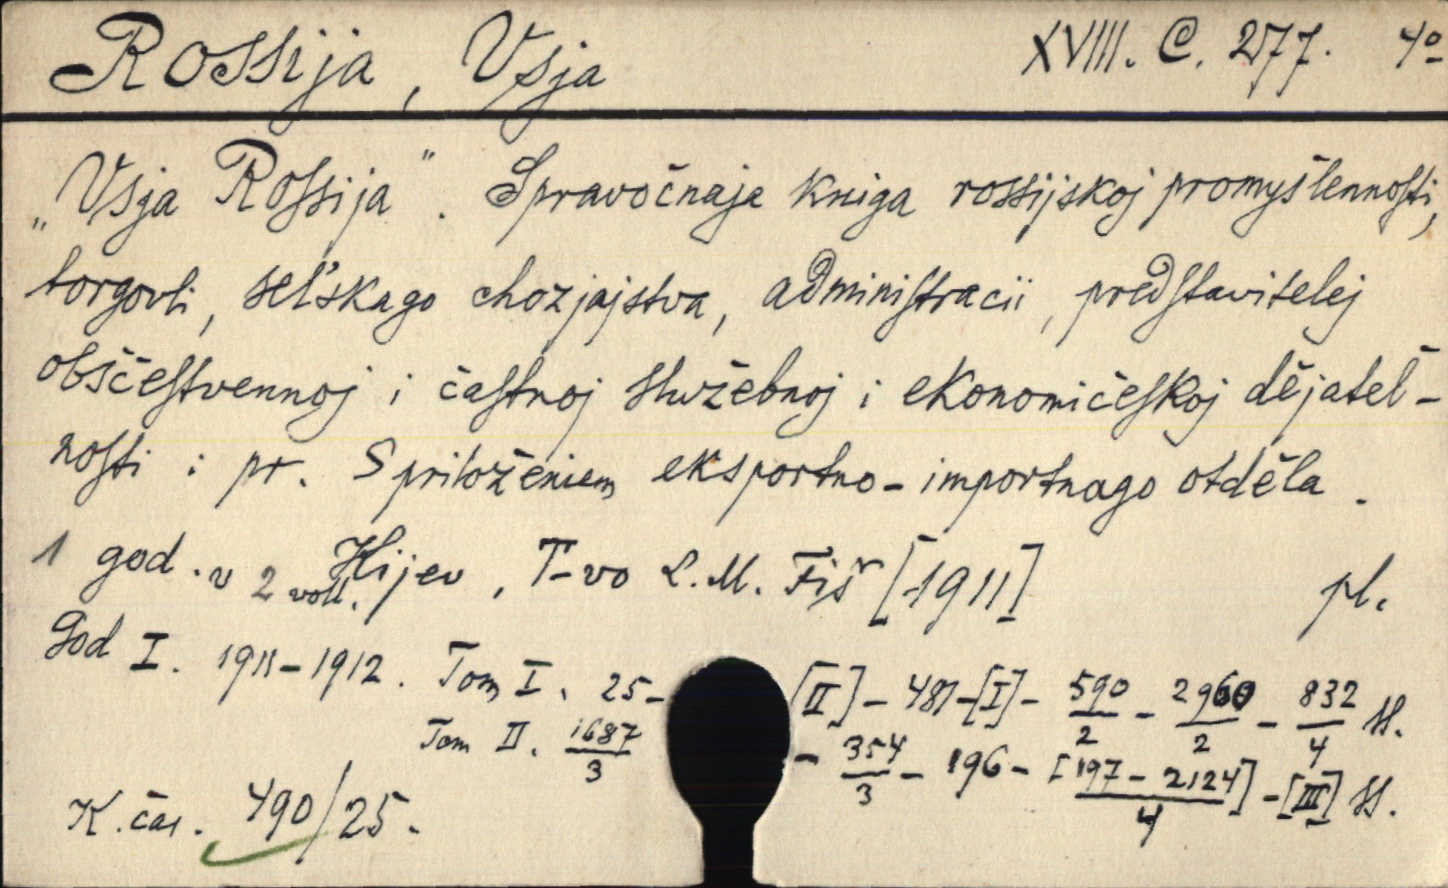 Rossija, Vsja XVIII. C. 277. 4º
„Vsja Rossija". Spravočnaja kniga rossijskoj promyšlennosti,
torgovli, sel'skago chozjajstva, administracii, predstavitelej
obščestvennoj i častnoj služebnoj i ekonomičeskoj dějatel-
nosti i pr. S priloženiem eksportno-importnago otděla.
1 god. v 2 voll. Kijev, T-vo L. M. Fiš [1911] pl.
God I. 1911-1912. Tom I. 25- [II] - 481-[I]- 590/2 - 2960/2 - 832/4 SS.
Tom II. 1687/3 - 354/3 - 196 - [197 - 2124]/4 - [III] SS.
K. čas. 490/25.